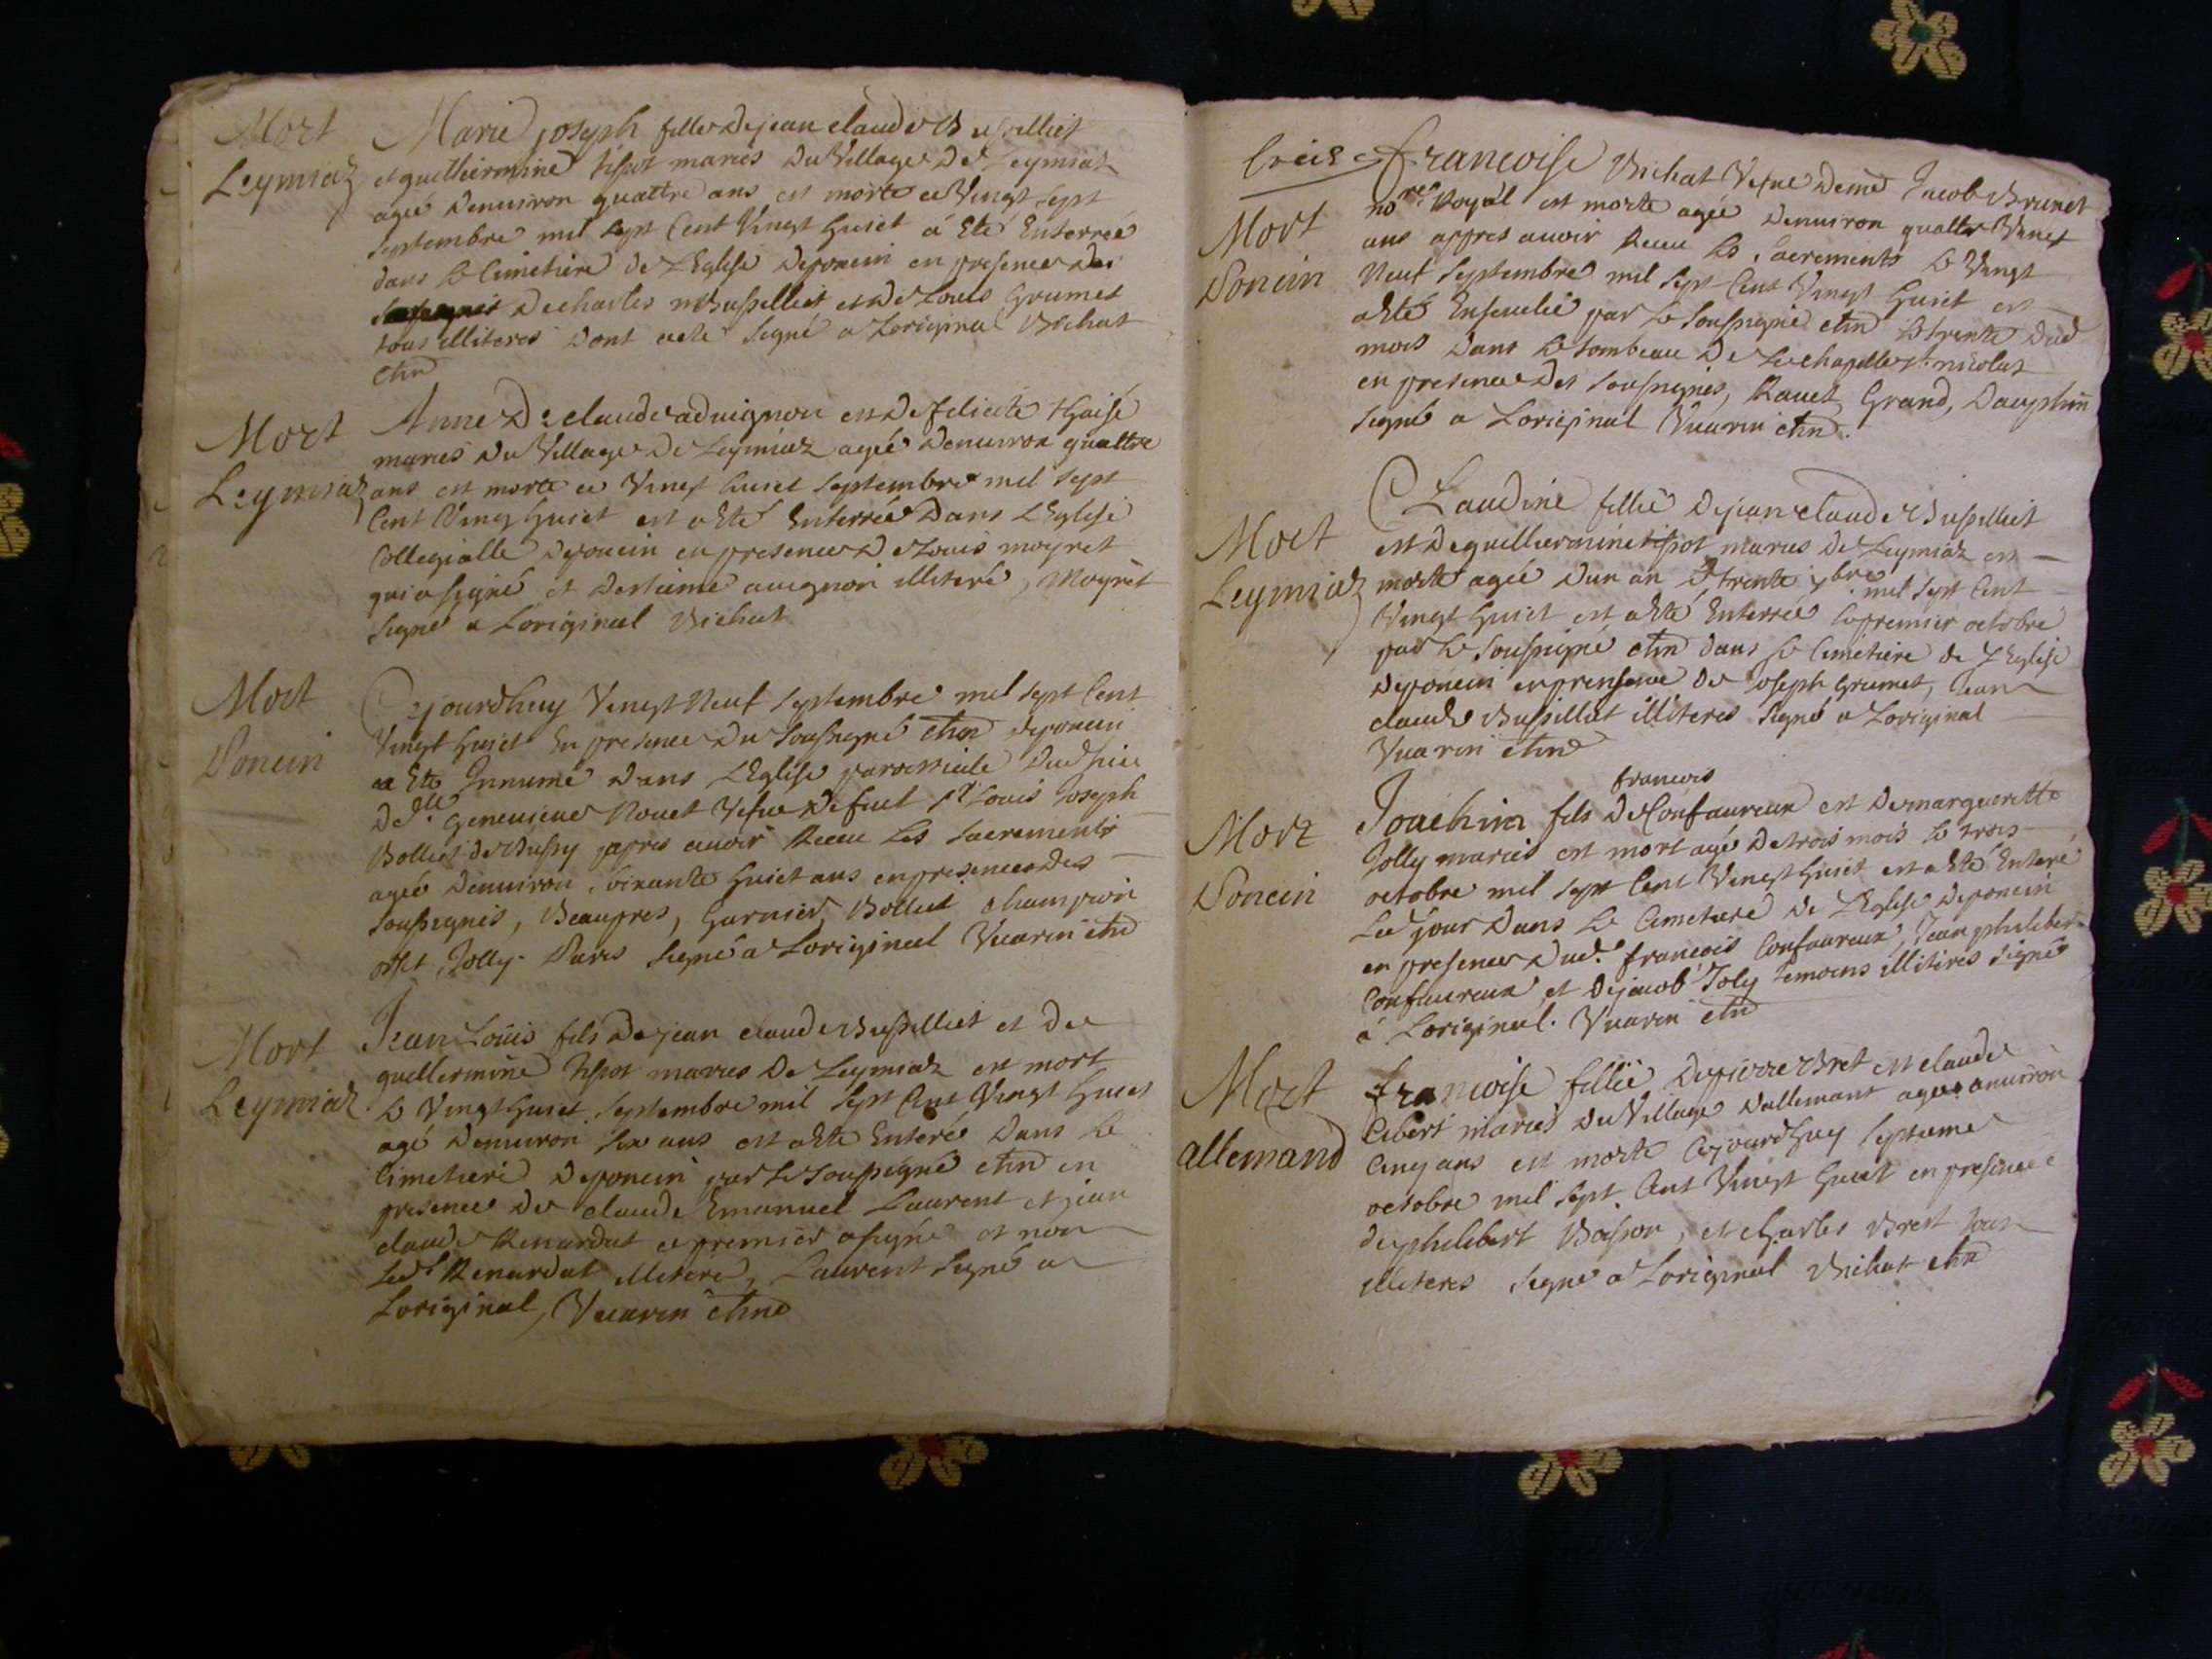 Mort
Leymiaz
Marie joseph fille dejean claude Bussilliet
et guelliermine tissot mariés du Village de Leymiaz
agée denuiron quattre ans est morte ce Vingt sept
septembre mil sept Cent Vingt huict á Eté Enterreé
dans le Cimetiere de L'Eglise deponcin en presence des
decharles Bussilliet et de Louis Grumet
tous illiteres dont acte signé a Loriginal Bichat
chñe
Mort
Leymiaz
Anne D: claude aduignon et de felicite
mariés du Village de Leymiaz agée denuiron quattre
ans est morte ce Vingt huict septembre mil sept
Cent Vingt huict et a Eté Enterrée Dans L'Eglise
Collegialle deponcin en presence de Louis moyret
qui a signé et destienne auignon illiteré, Moyret
signé a Loriginal Bichat
Mort
Poncin
Cejourdhuy Vingt Neuf septembre mil sept Cent
Vingt huict En presence du soussigné chñe deponcin
a Eté Innumé dans L'Eglise parrochiale Dud lieu
Delle Geneuieue Rouet Vefue defeut sr Louis Joseph
Bolliet de Bussy apres auoir Receu Les sacrements
ageé denuiron soixante huict ans en presence des
soussignés, Beaupres, Garnier, Bolliet champion
Jolly. Paris signé a Loriginal Vuarin chñe
Mort
Leymiaz
Jean Louis fils de jean claude Bussilliet et de
guellermine tissot mariés de Leymiaz est mort
le Vingt huict septembre mil sept Cent Vingt huict
agé denuiron six ans et a Eté Enteré dans le
Cimetiere deponcin par le soussigné chñe en
presence de claude Emanuel Laurent et jean
claude Renardat ce premier a signé et non
led.t Renardat illiteré, Laurent signé a
Loriginal, Vuarin chñe
Mort
Poncin
francoise Bichat Vefue deme Jacob Brunet
nore Royal est morte agée denuiron quattre Vingt
ans appres auoir Receu les sacrements le Vingt
Neuf septembre mil sept Cent Vingt huict et
a Eté Enseuelie par le soussigné chñe le trente dud
mois dans le tombeau de La chapelle st nicolas
en presence des soussignés, Rauet Grand, Dauphin
signé a Loriginal Vuarin chñe.
Mort
Leymiaz
Claudine fillie dejean claude Bussilliet
et deguelliermine tissot mariés de Leymiaz est
morte agée dun an le trente 7bre mil sept Cent
Vingt huict et a Eté Enterrée le premier octobre
par le soussigné chñe dans le Cimetiere de L'Eglise
deponcin en presence de joseph Grumet, jean
claude Bussilliet illiteres signé a Loriginal
Vuarin chñe
Mort
Poncin
francois
Joachim fils de Confaureux et demargueritte
Jolly mariés est mort agé detrois mois le trois
octobre mil sept Cent Vingt huict et a Eté Enteré
Led jour dans Le Cimetiere de L'Eglise deponcin
en presence dud.t francois Confaureux, Jean philiber
Confaureux et dejacob Joly temoins illiteres signé
á Loriginal. Vuarin chñe
Mort
allemand
francoise fillie depierre Bret et claude
Cibert mariés du Village dallemant agée anuiron
Cinq ans est morte Cejourdhuy septieme
octobre mil sept Cent Vingt huict en presence
dephilibert Bosson, et charles Bret tous
illiteres signé a Loriginal Bichat chñe